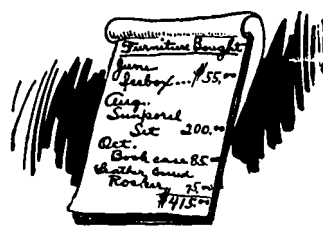 Furniture Bought
June
Icebox... $55.00
Aug.
Sunporch
Set 200.00
Oct.
Book case 85.00
Leather
Rocker 75.00
$415.00